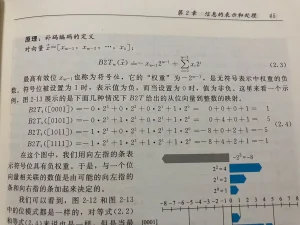 第2章 信息的表示和处理 45
原理:补码编码的定义
对向量 x⃗=[x_{w-1}, x_{w-2}, …, x_0]:
B2T_w(x⃗) ≐ -x_{w-1}2^{w-1} + \sum_{i=0}^{w-2} x_i 2^i (2.3)
最高有效位 x_{w-1} 也称为符号位,它的“权重”为 -2^{w-1},是无符号表示中权重的负
数。符号位被设置为 1 时,表示值为负,而当设置为 0 时,值为非负。这里来看一个示
例,图 2-13 展示的是下面几种情况下 B2T 给出的从位向量到整数的映射。
B2T_4([0001]) = -0·2^3 + 0·2^2 + 0·2^1 + 1·2^0 = 0+0+0+1 = 1
B2T_4([0101]) = -0·2^3 + 1·2^2 + 0·2^1 + 1·2^0 = 0+4+0+1 = 5
B2T_4([1011]) = -1·2^3 + 0·2^2 + 1·2^1 + 1·2^0 = -8+0+2+1 = -5
B2T_4([1111]) = -1·2^3 + 1·2^2 + 1·2^1 + 1·2^0 = -8+4+2+1 = -1
在这个图中,我们用向左指的条表
示符号位具有负权重。于是,与一个位
向量相关联的数值是由可能的向左指的
条和向右指的条加起来决定的。
我们可以看到,图 2-12 和图 2-13
中的位模式都是一样的,对等式(2.2)
和等式(2.4)来说也是一样,但是当最
-2^3=-8
2^2=4
2^1=2
2^0=1
-8 -7 -6 -5 -4 -3 -2 -1 0 1 2 3 4 5 6 7 8
[0001]